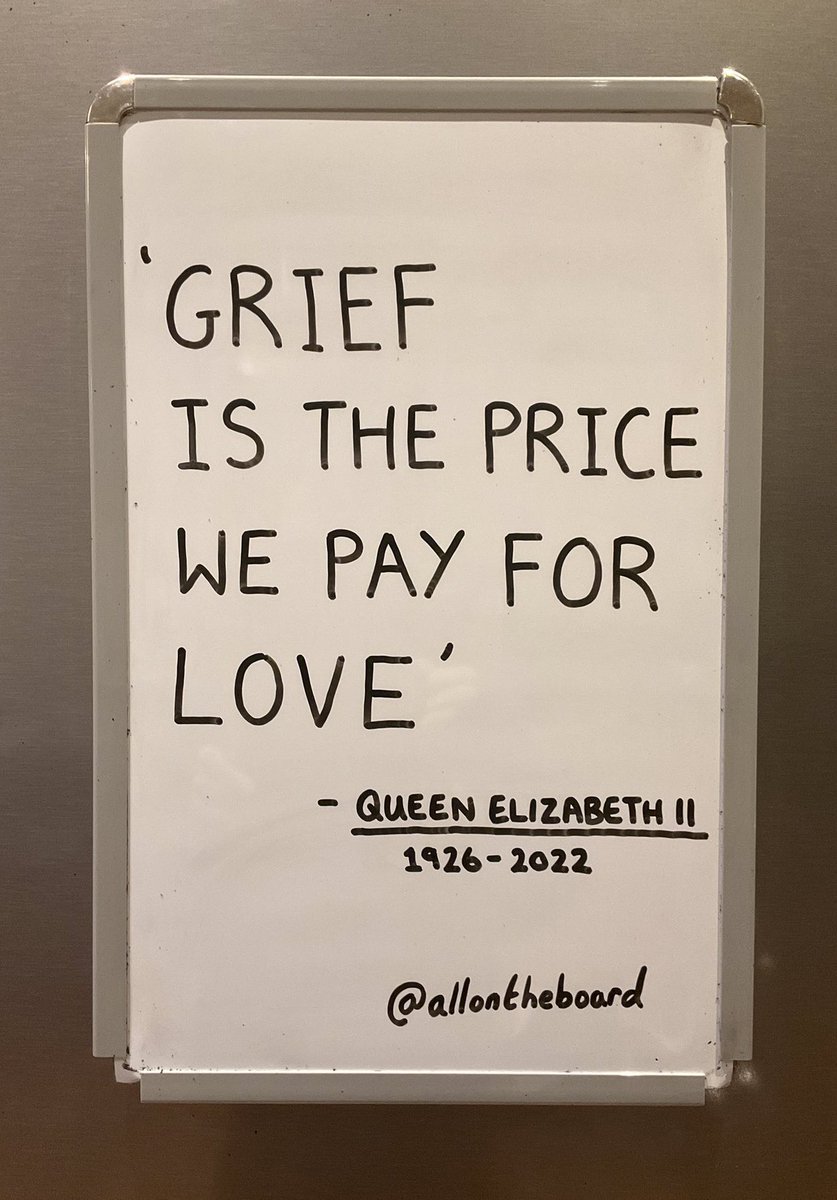 'GRIEF
IS THE PRICE
WE PAY FOR
LOVE'
- QUEEN ELIZABETH II
1926-2022
@allontheboard